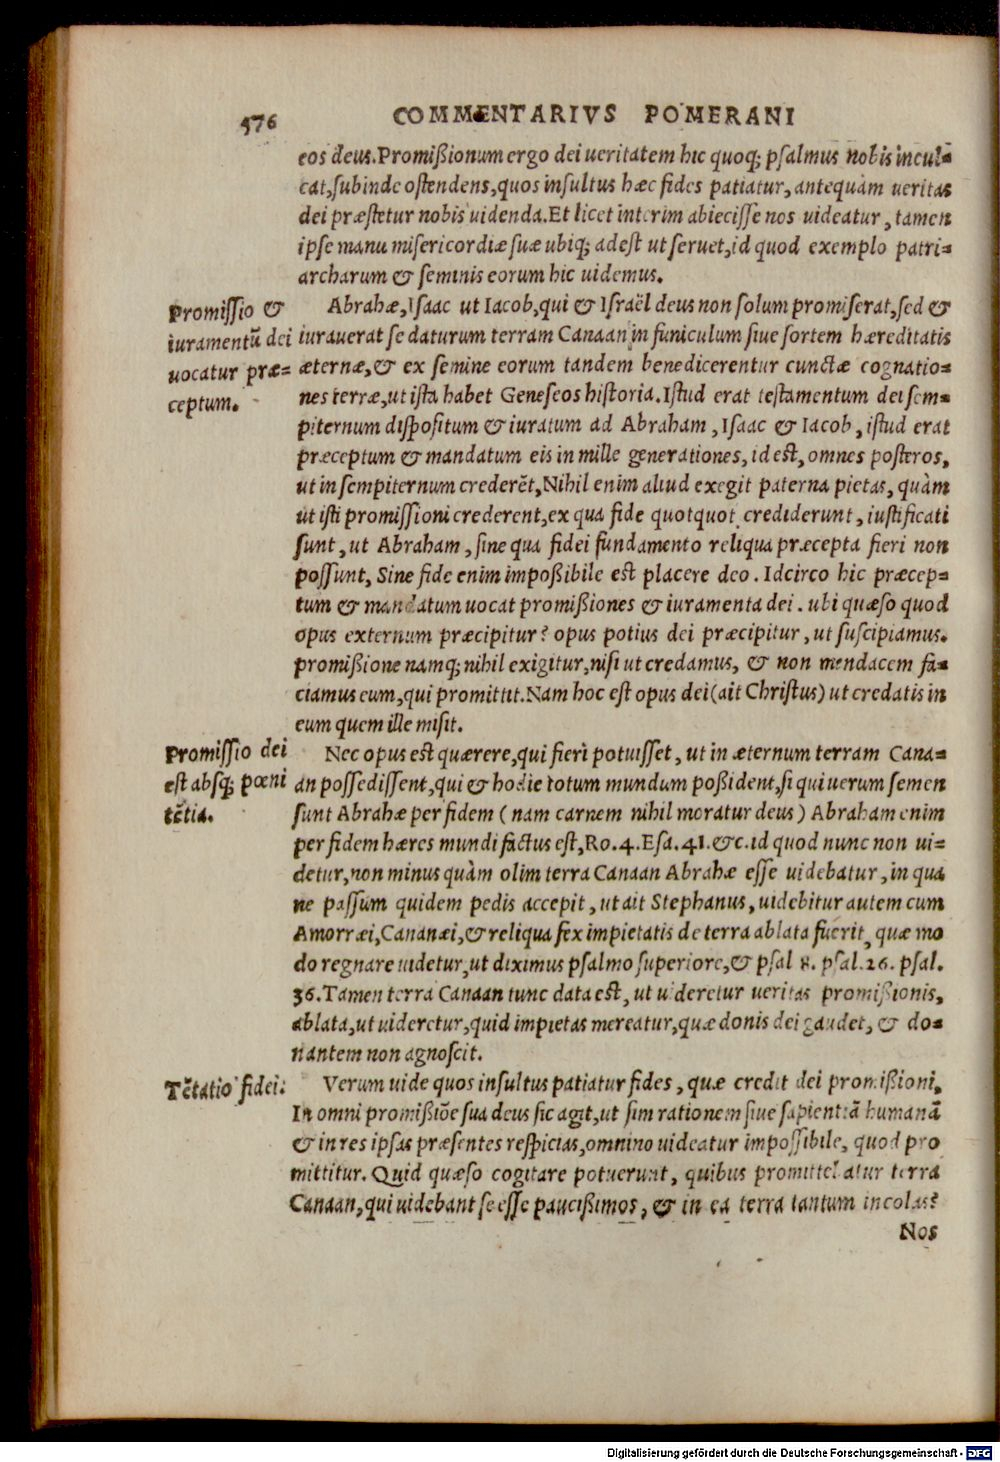 576 COMMENTARIVS POMERANI
eos deus.Promißionum ergo dei ueritatem hic quoq; psalmus nobis incul=
cat,subinde ostendens,quos insultus hæc fides patiatur,antequàm ueritas
dei præstetur nobis uidenda.Et licet interim abiecisse nos uideatur, tamen
ipse manu misericordiæ suæ ubiq; adest ut seruet,id quod exemplo patri=
archarum & seminis eorum hic uidemus.
Promissio &
iuramentũ dei
uocatur præ=
ceptum.
Abrahæ,Isaac ut Iacob,qui & Israël deus non solum promiserat,sed &
iurauerat se daturum terram Canaan in funiculum siue sortem hæreditatis
æternæ,& ex semine eorum tandem benedicerentur cunctæ cognatio=
nes terræ,ut ista habet Geneseos historia.Istud erat testamentum dei sem=
piternum dispositum & iuratum ad Abraham, Isaac & Iacob, istud erat
præceptum & mandatum eis in mille generationes, id est, omnes posteros,
ut in sempiternum crederẽt,Nihil enim aliud exegit paterna pietas, quàm
ut isti promissioni crederent,ex qua fide quotquot crediderunt, iustificati
sunt, ut Abraham, sine qua fidei fundamento reliqua præcepta fieri non
possunt, Sine fide enim impoßibile est placere deo. Idcirco hic præcep=
tum & mandatum uocat promißiones & iuramenta dei. ubi quæso quod
opus externum præcipitur? opus potius dei præcipitur, ut suscipiamus.
promißione namq; nihil exigitur,nisi ut credamus, & non mendacem fa=
ciamus eum,qui promittit.Nam hoc est opus dei(ait Christus) ut credatis in
eum quem ille misit.
Promissio dei
est absq; pœni
tẽtia.
Nec opus est quærere,qui fieri potuisset, ut in æternum terram Cana=
an possedissent,qui & hodie totum mundum poßident,si qui uerum semen
sunt Abrahæ per fidem (nam carnem nihil moratur deus) Abraham enim
per fidem hæres mundi factus est,Ro.4.Esa.41.&c.id quod nunc non ui=
detur,non minus quàm olim terra Canaan Abrahæ esse uidebatur, in qua
ne passum quidem pedis accepit, ut ait Stephanus, uidebitur autem cum
Amorræi,Cananæi,& reliqua fex impietatis de terra ablata fuerit, quæ mo
do regnare uidetur,ut diximus psalmo superiore,& psal 8. psal.26. psal.
36.Tamen terra Canaan tunc data est, ut uideretur ueritas promißionis,
ablata,ut uideretur,quid impietas mereatur,quæ donis dei gaudet, & do=
nantem non agnoscit.
Tẽtatio fidei:
Verum uide quos insultus patiatur fides, quæ credit dei promißioni,
In omni promißiõe sua deus sic agit,ut sim rationem siue sapientiã humanã
& in res ipsas præsentes respicias,omnino uideatur impossibile, quod pro
mittitur. Quid quæso cogitare potuerunt, quibus promittebatur terra
Canaan,qui uidebant se esse paucißimos, & in ea terra tantum incolas?
Nos
Digitalisierung gefördert durch die Deutsche Forschungsgemeinschaft - DFG